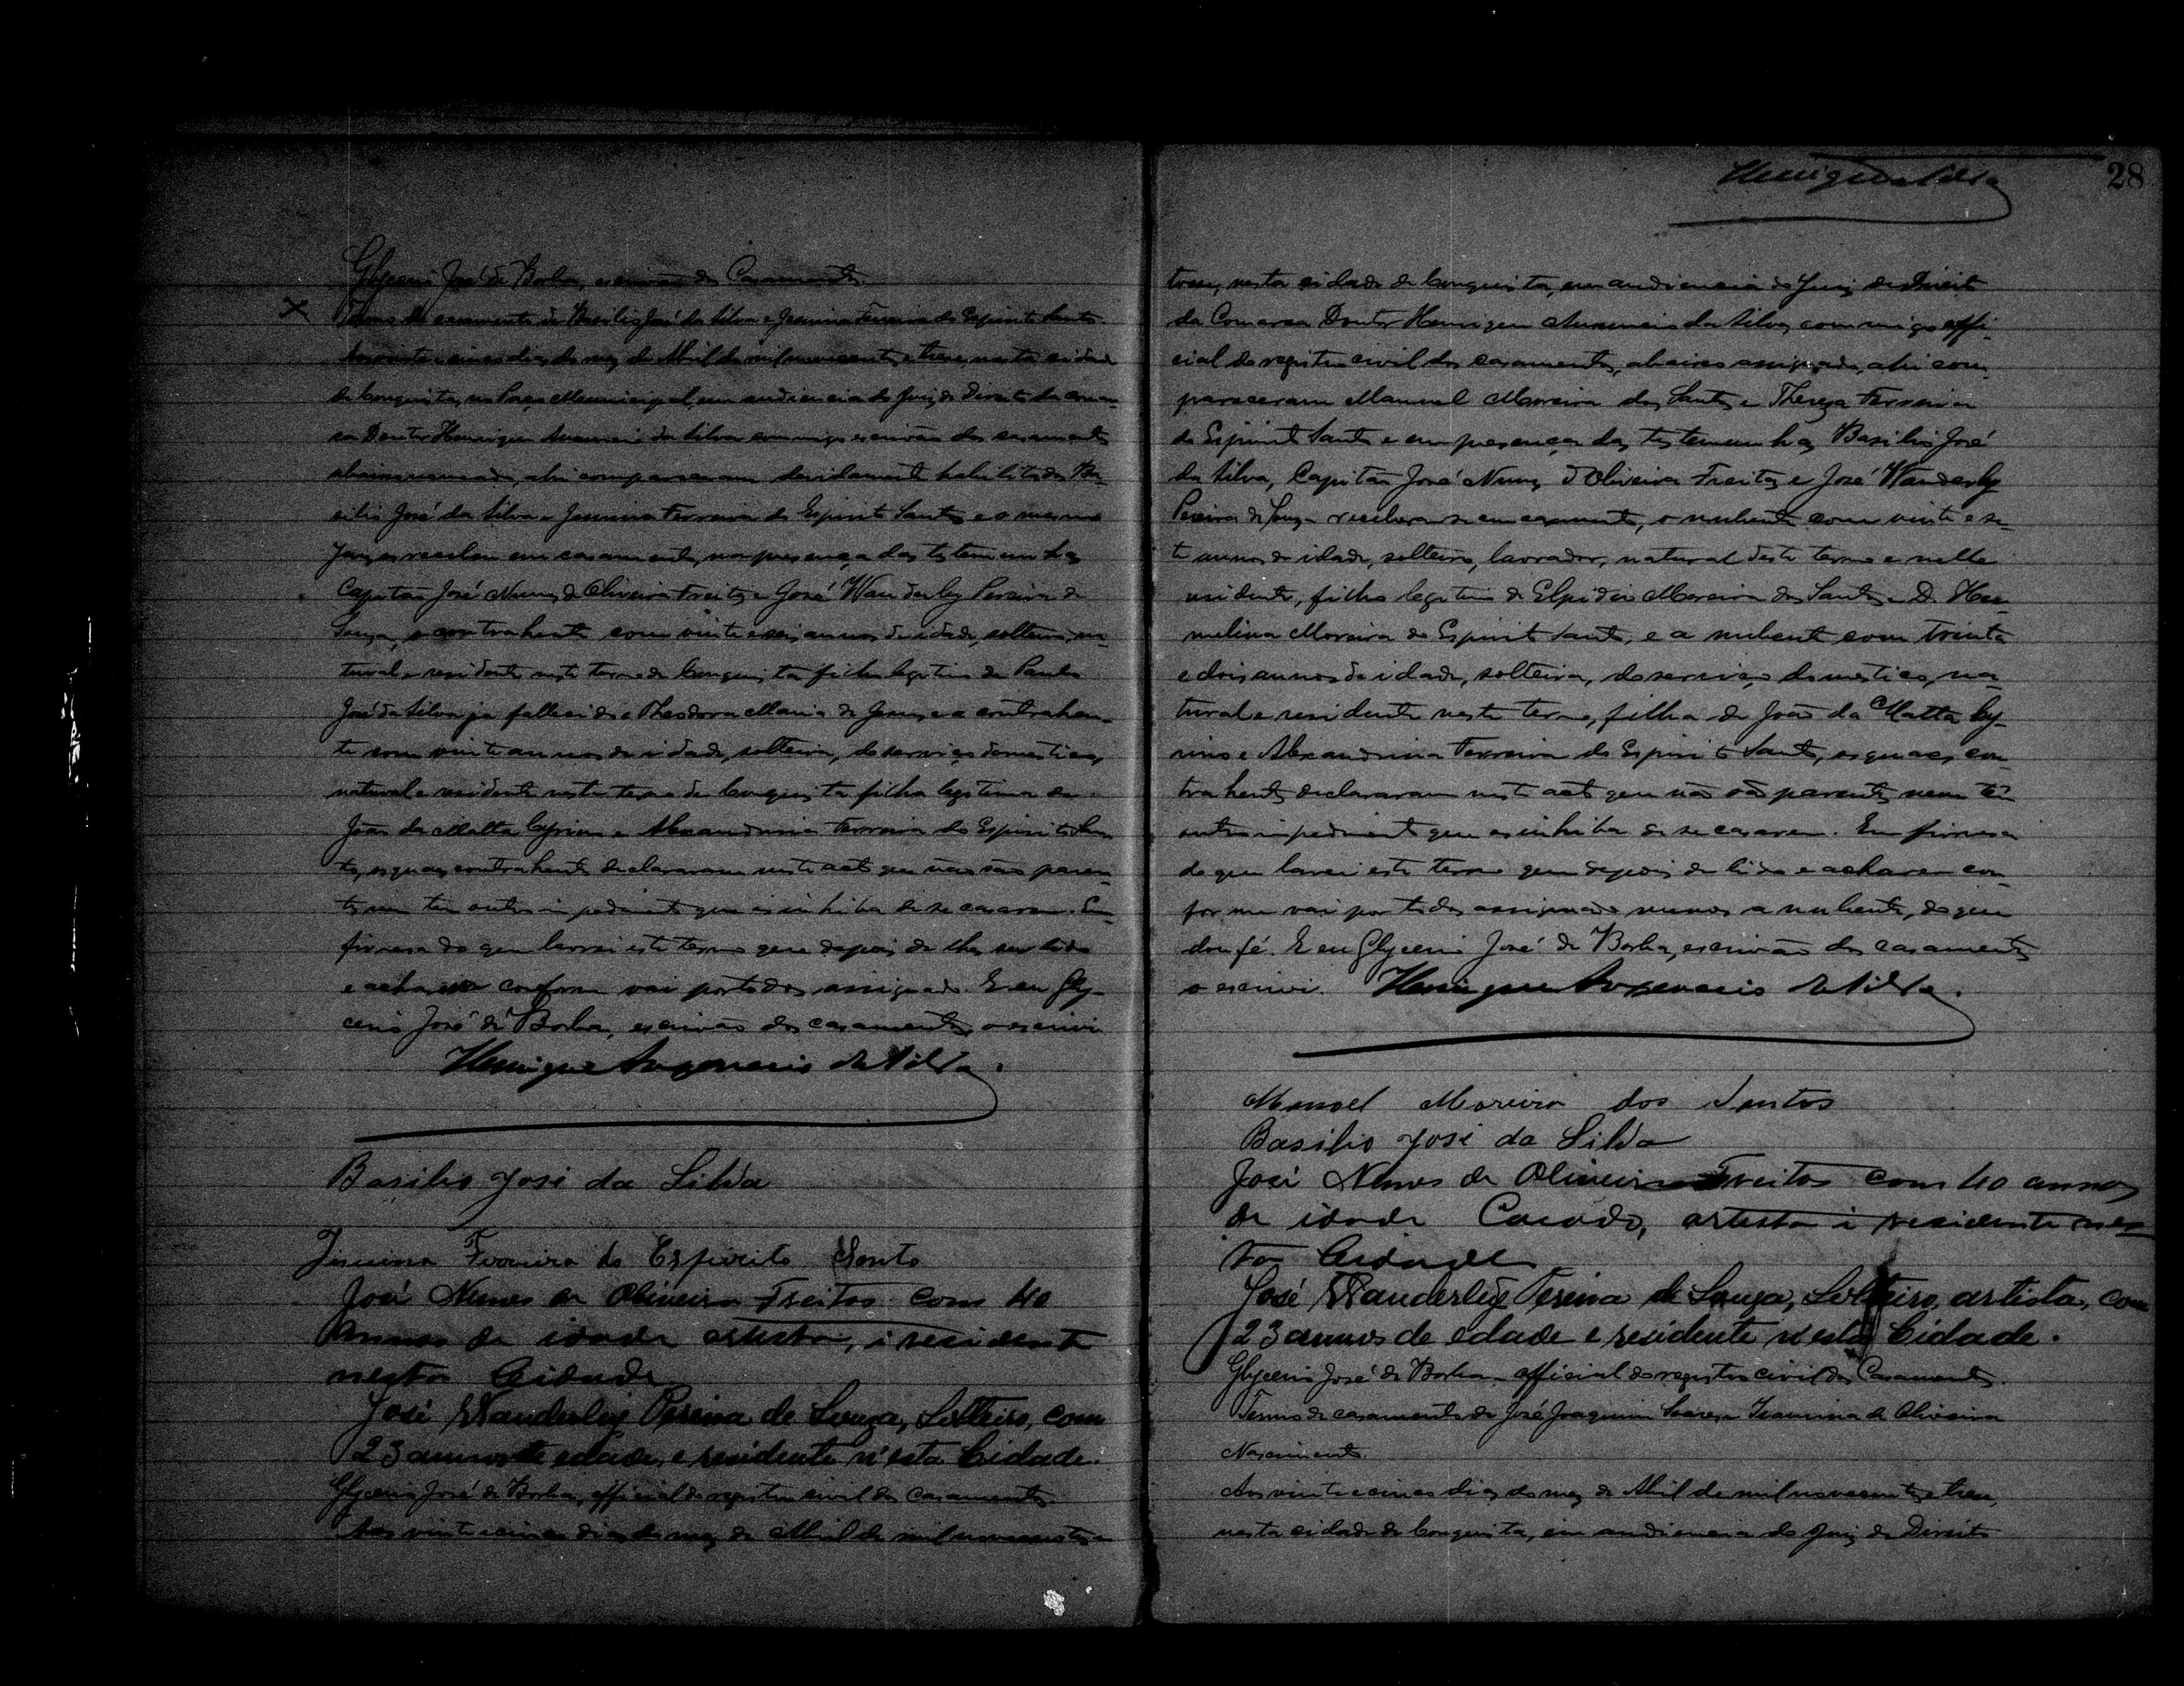 Glycerio José de Borba, escrivão dos Casamentos.
Termo de casamento de Basilio José da Silva e Jesuina Ferreira do Espirito Santo.
Aos vinte e cinco dias do mez de Abril de mil novecentos e treze, nesta cidade
de Conquista, no Paço Municipal, em audiencia do Juiz de Direito da comar-
ca Doutor Henrique Auxencio da Silva commigo escrivão dos casamentos
abaixo nomeado, ahi compareceram devidamente habilitados Ba-
silio José da Silva e Jesuina Ferreira do Espirito Santo e o mesmo
Juiz os recebeu em casamento, na presença das testemunhas
Capitão José Nunes de Oliveira Freitas e José Wanderley Pereira de
Souza, o contrahente com vinte e seis annos de idade, solteiro, na-
tural e residente neste termo de Conquista filho legitimo de Paulo
José da Silva ja fallecido e Theodora Maria de Jesus e a contrahen-
te com vinte annos de idade, solteira, de serviços domesticos,
natural e residente neste termo de Conquista filha legitima de
João da Matta Cyrino e Alexandrina Ferreira do Espirito San-
to, os quaes contrahentes declararam neste acto que não são paren-
tes nem tem outro impedimento que os inhiba de se casarem. Em
firmesa do que lavrei este termo que depois de lhes ser lido
e acharem conforme vai por todos assignado. E eu Gly-
cerio José de Borba, escrivão dos casamentos o escrivi
Henrique Auxencio da Silva.
Basilio José da Silva
Jesuina Ferreira do Espirito Santo
José Nunes de Oliveira Freitas com 40
annos de idade artista, i residente
nesta Cidade
José Wanderley Pereira de Souza, Solteiro, com
23 annos de edade, e residente n'esta Cidade.
Glycerio José de Borba, official do registro civil dos casamentos.
Aos vinte e cinco dias do mez de Abril de mil novecentos e
Henrique Silva
28
treze, nesta cidade de Conquista, em audiencia do Juiz de Direito
da Comarca Doutor Henrique Auxencio da Silva, commigo offi-
cial do registro civil dos casamentos, abaixo assignado, ahi com-
pareceram Manuel Moreira dos Santos e Thereza Ferreira
do Espirito Santo e em presença das testemunhas Basilio José
da Silva, Capitão José Nunes d'Oliveira Freitas e José Wanderley
Pereira de Souza receberam-se em casamento, o nubente com vinte e se-
te annos de idade, solteiro, lavrador, natural deste termo e nelle
residente, filho legitimo de Elpidio Moreira dos Santos e D. Her-
melina Moreira do Espirito Santo, e a nubente com trinta
e dois annos de idade, solteira, de serviço domestico, na-
tural e residente neste termo, filha de João da Matta Cy-
rino e Alexandrina Ferreira do Espirito Santo, os quaes con-
trahentes declararam neste acto que não são parentes nem têm
outro impedimento que os inhiba de se casarem. Em firmesa
do que lavrei este termo que depois de lido e acharem con-
forme vai por todos assignado menos a nubente, do que
dou fé. E eu Glycerio José de Borba, escrivão dos casamentos
o escrivi. Henrique Auxencio da Silva.
Manoel Moreira dos Santos
Basilio José da Silva
José Nunes de Oliveira Freitas com 40 annos
de idade Casado, artista i residente nes-
ta Cidade
José Wanderley Pereira de Souza, Solteiro, artista, com
23 annos de edade e residente n'esta Cidade.
Glycerio José de Borba official do registro civil dos Casamentos.
Termo de casamento de José Joaquim Soares e de Oliveira
Nascimento.
Aos vinte e cinco dias do mez de Abril de mil novecentos e treze,
nesta cidade de Conquista, em audiencia do Juiz de Direito